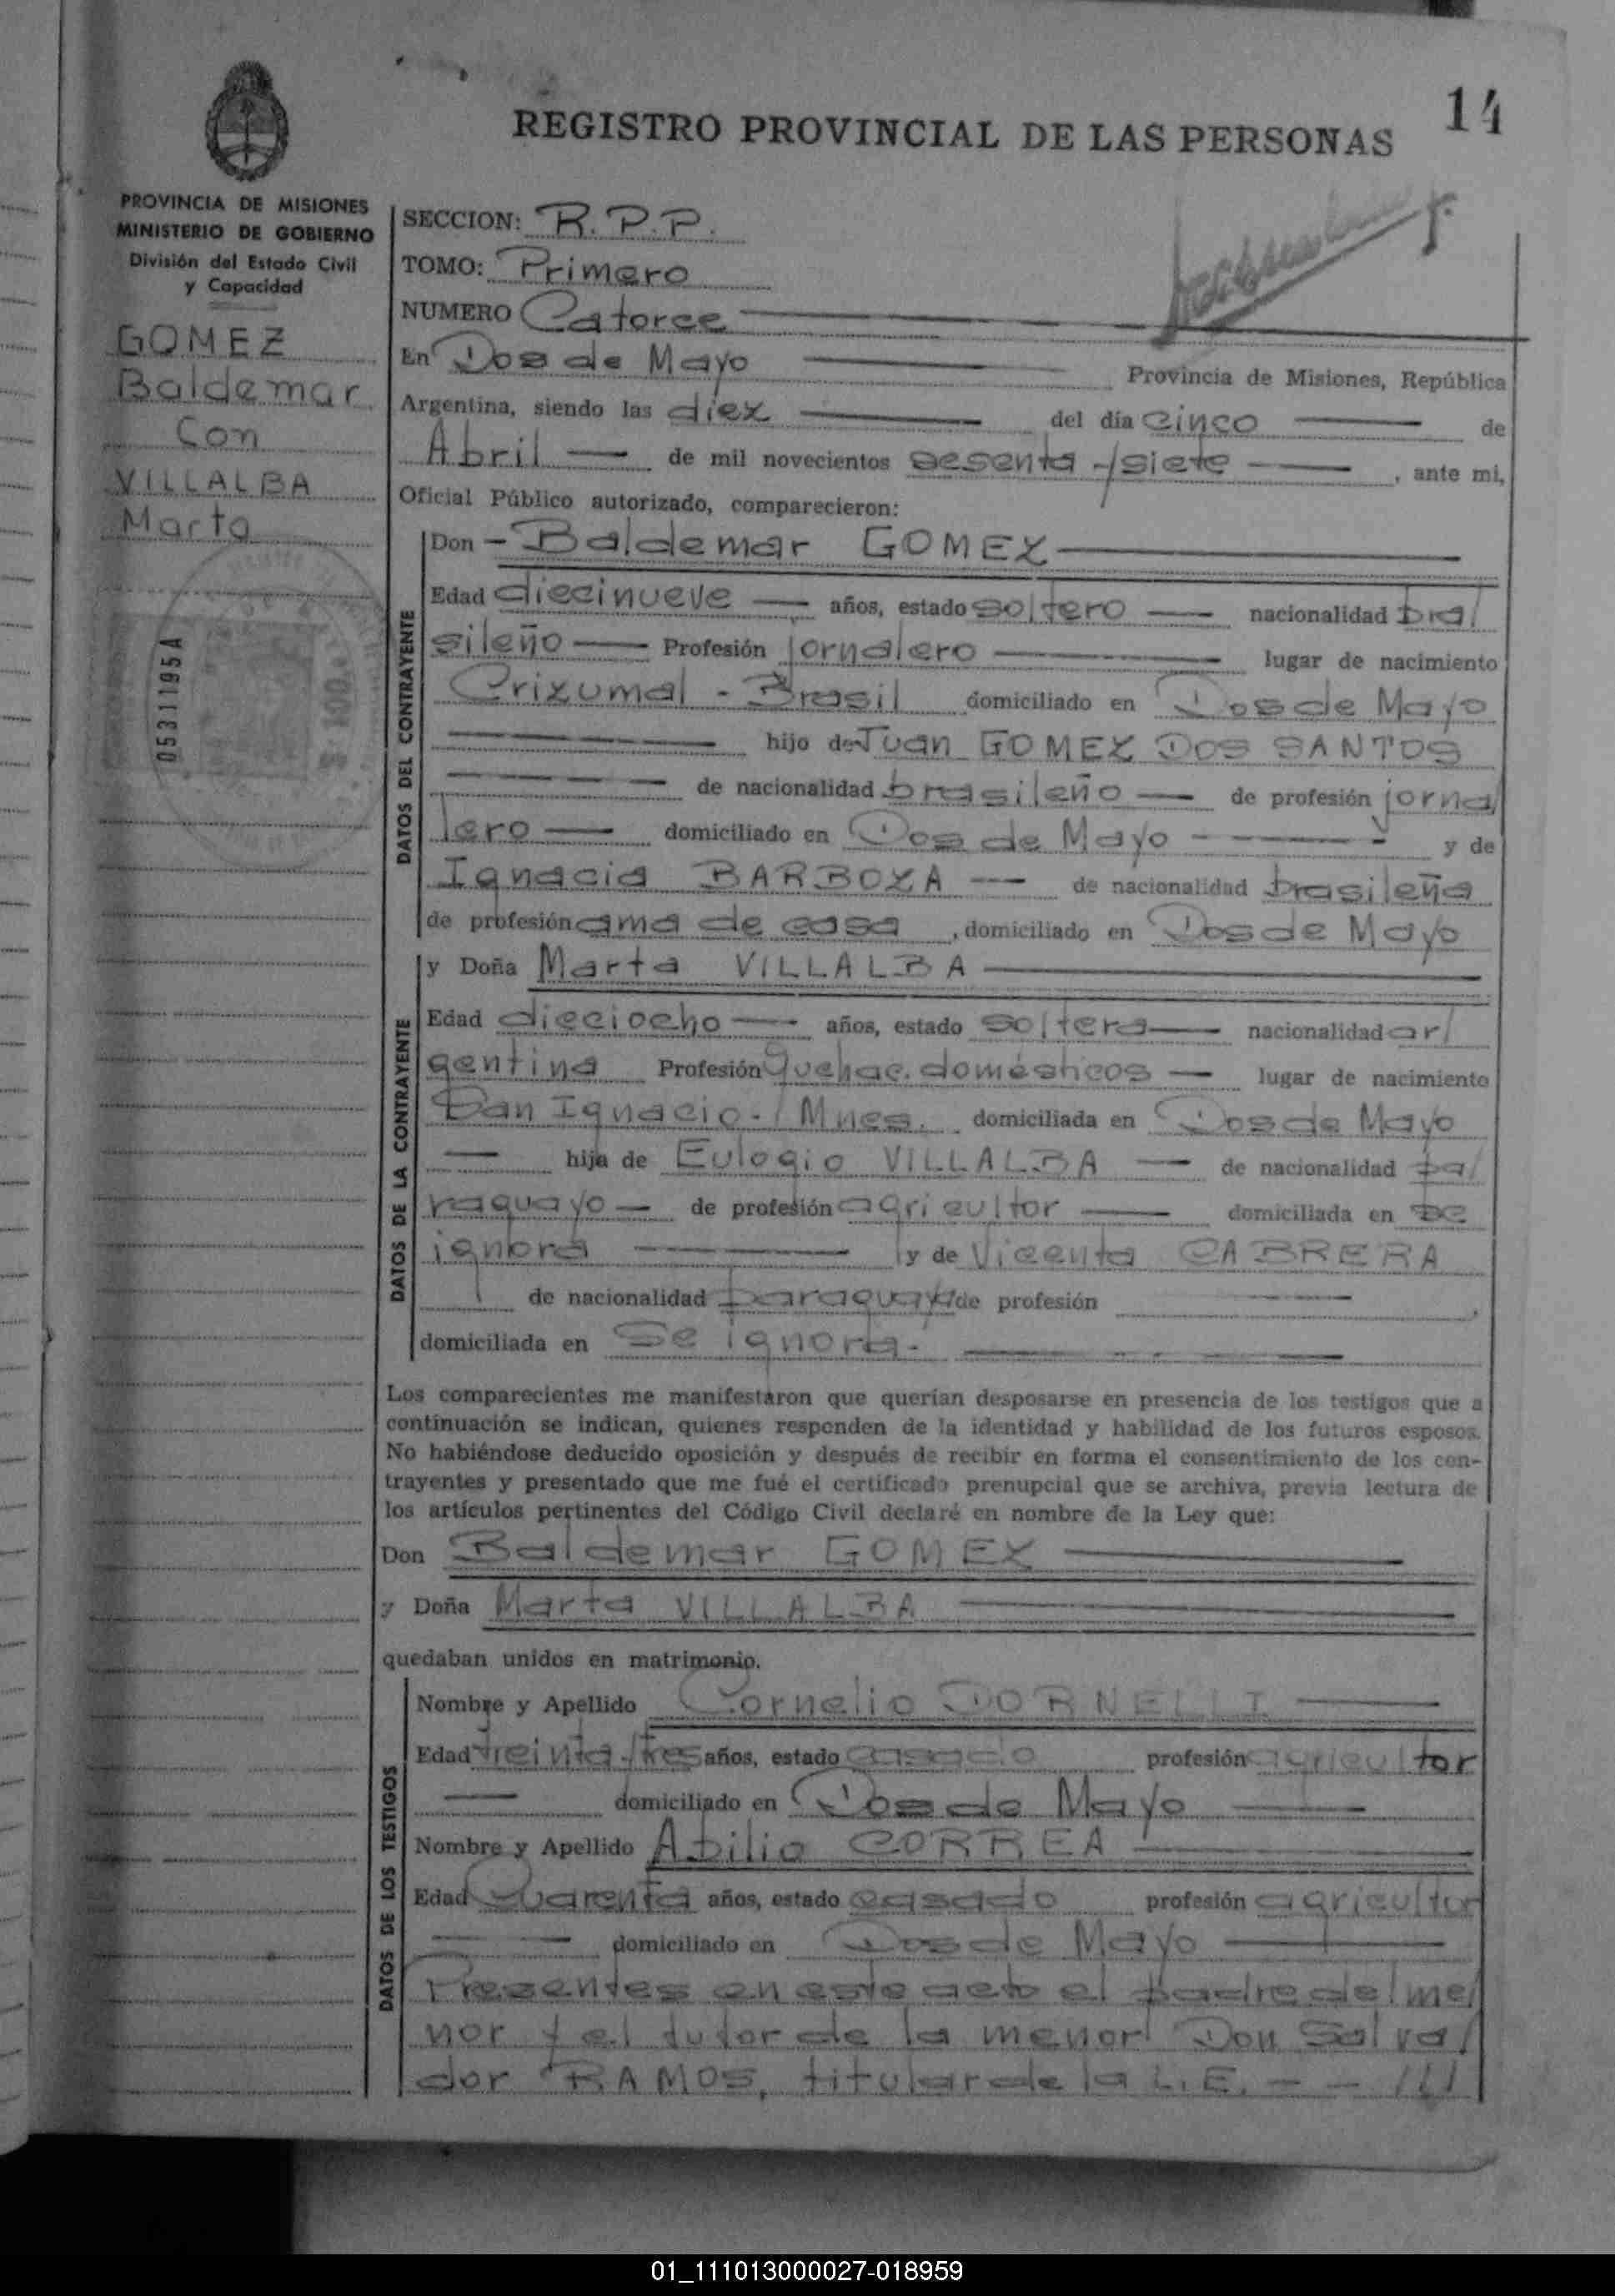 14
REGISTRO PROVINCIAL DE LAS PERSONAS
PROVINCIA DE MISIONES
MINISTERIO DE GOBIERNO
División del Estado Civil
y Capacidad
GOMEZ
Baldemar
Con
VILLALBA
Marta
0531195A
SECCION: R.P.P.
TOMO: Primero
NUMERO Catorce
En Dos de Mayo Provincia de Misiones, República
Argentina, siendo las diez del día cinco de
Abril de mil novecientos sesenta y siete, ante mi,
Oficial Público autorizado, comparecieron:
DATOS DEL CONTRAYENTE
Don Baldemar GOMEZ
Edad diecinueve años, estado soltero nacionalidad bra/
sileño Profesión jornalero lugar de nacimiento
Crizumal - Brasil domiciliado en Dos de Mayo
hijo de Juan GOMEZ DOS SANTOS
de nacionalidad brasileño de profesión jorna/
lero domiciliado en Dos de Mayo y de
Ignacia BARBOZA de nacionalidad brasileña
de profesión ama de casa, domiciliado en Dos de Mayo
DATOS DE LA CONTRAYENTE
y Doña Marta VILLALBA
Edad dieciocho años, estado soltera nacionalidad ar/
gentina Profesión quehac. domésticos lugar de nacimiento
San Ignacio-/Mnes. domiciliada en Dos de Mayo
hija de Eulogio VILLALBA de nacionalidad pa/
raguayo de profesión agricultor domiciliada en se
ignora y de Vicenta CABRERA
de nacionalidad paraguaya de profesión
domiciliada en Se ignora.
Los comparecientes me manifestaron que querían desposarse en presencia de los testigos que a
continuación se indican, quienes responden de la identidad y habilidad de los futuros esposos.
No habiéndose deducido oposición y después de recibir en forma el consentimiento de los con-
trayentes y presentado que me fué el certificado prenupcial que se archiva, previa lectura de
los artículos pertinentes del Código Civil declaré en nombre de la Ley que:
Don Baldemar GOMEZ
y Doña Marta VILLALBA
quedaban unidos en matrimonio.
DATOS DE LOS TESTIGOS
Nombre y Apellido Cornelio DORNELLI
Edad treinta y tres años, estado casado profesión agricultor
domiciliado en Dos de Mayo
Nombre y Apellido Abilio CORREA
Edad Cuarenta años, estado casado profesión agricultor
domiciliado en Dos de Mayo
Presentes en este acto el padre del me/
nor y el tutor de la menor Don Salva/
dor RAMOS, titular de la L.E. - - ///
01_111013000027-018959